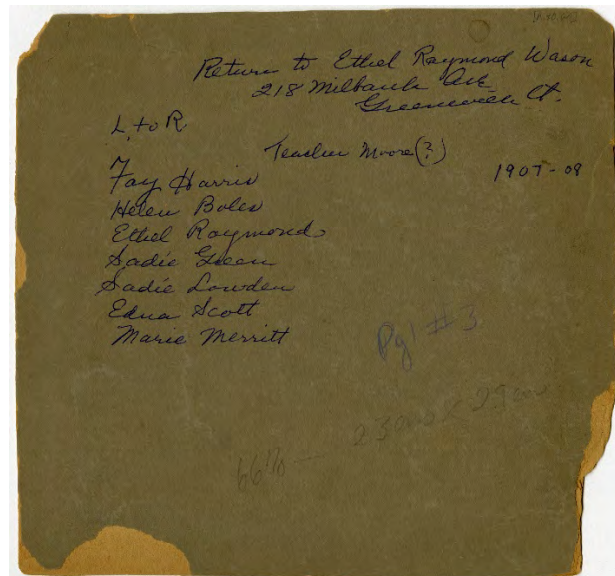 Return to Ethel Raymond Wason
218 Milbank Ave
Greenwich Ct.
L. to R
Teacher Moore(?)
1907-08
Fay Harris
Helen Boles
Ethel Raymond
Sadie Green
Sadie Lowden
Edna Scott
Marie Merritt
Pg1 #3
66% — 23000 < 2300